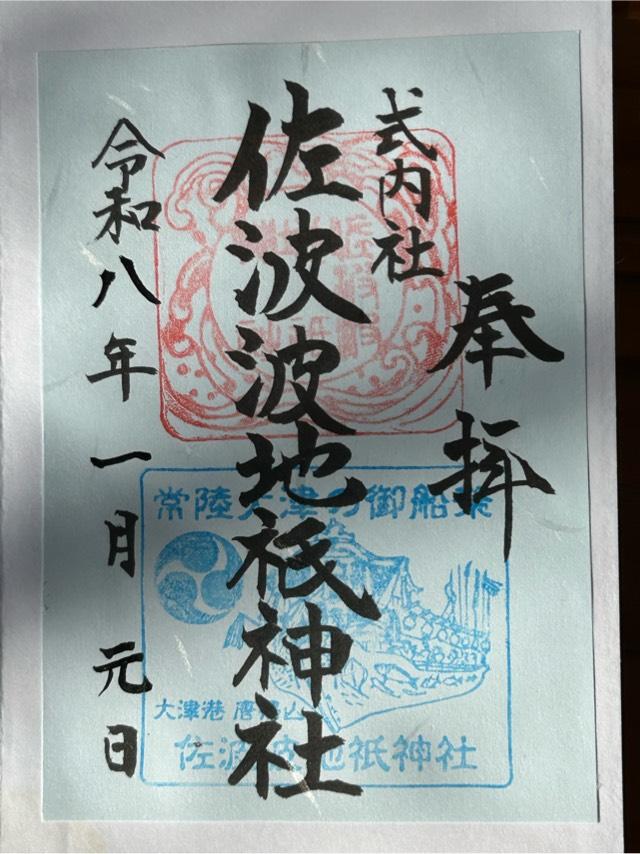 奉拝
式内社
佐波波地祇神社
令和八年一月元日
常陸大津の御船祭
大津港 唐帰山
佐波波地祇神社